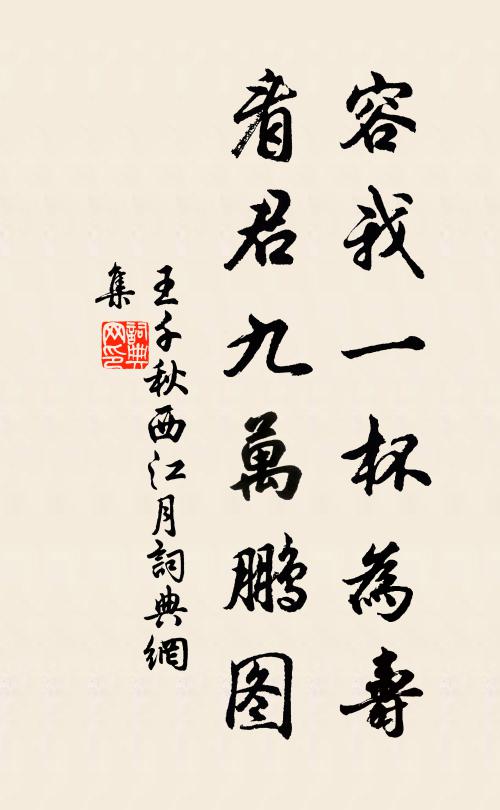 容我一杯為壽
看君九萬鵬图
王千秋西江月詞典網
集
詞典
网印